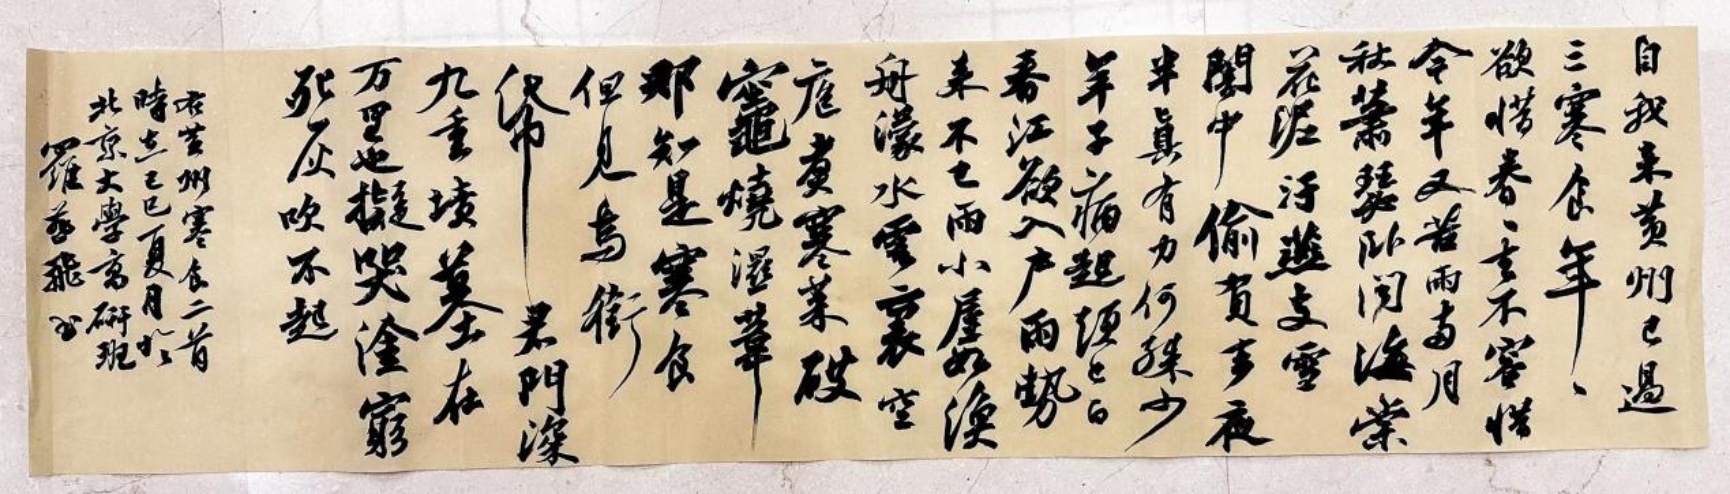 自我来黄州已過
三寒食年〻
欲惜春〻去不容惜
今年又苦雨兩月
秋蕭瑟卧聞海棠
花泥汙燕支雪
闇中偷負去夜
半真有力何殊少
年子病起須已白
春江欲入户雨勢
来不已雨小屋如漁
舟濛水雲裏空
庖煮寒菜破
竈燒濕葦
那知是寒食
但見烏銜
帋君門深
九重墳墓在
万里也擬哭塗窮
死灰吹不起
右黄州寒食二首
時在乙巳夏月於
北京大學高研班
羅飛書